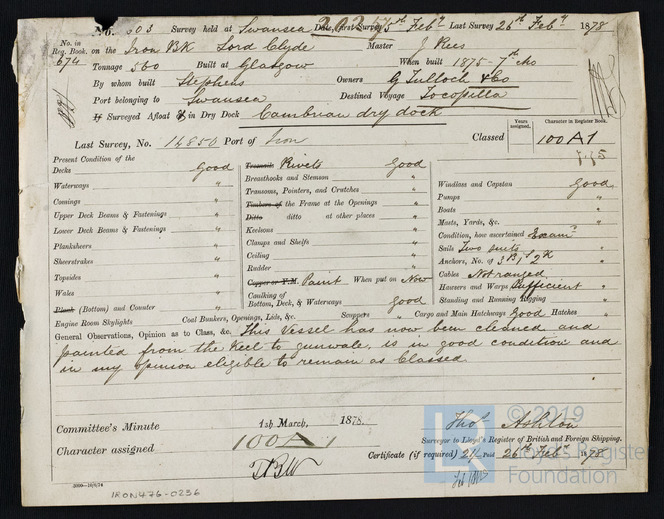 No. 503 Survey held at Swansea Date, First Survey 5th Feby Last Survey 26th Feby 1878
20257
No. in Reg. Book. 674 on the Iron BK Lord Clyde Master J Rees
Tonnage 560 Built at Glasgow When built 1875 - 7th Mo
By whom built Stephens Owners G Tulloch & Co
Port belonging to Swansea Destined Voyage Tocopilla
If Surveyed Afloat or in Dry Dock Cambrian dry dock
Last Survey, No. 14850 Port of Iron Classed
Years assigned.
Character in Register Book.
100A1
7.75
Present Condition of the
Decks Good
Waterways "
Comings "
Upper Deck Beams & Fastenings "
Lower Deck Beams & Fastenings "
Planksheers "
Sheerstrakes "
Topsides "
Wales "
Plank (Bottom) and Counter "
Engine Room Skylights
Treenails Rivets Good
Breasthooks and Stemson "
Transoms, Pointers, and Crutches "
Timbers of the Frame at the Openings "
Ditto ditto at other places "
Keelsons "
Clamps and Shelfs "
Ceiling "
Rudder "
Copper or Y.M. Paint When put on Now
Caulking of Bottom, Deck, & Waterways Good
Coal Bunkers, Openings, Lids, &c. Scuppers " Cargo and Main Hatchways Good Hatches "
Windlass and Capstan Good
Pumps "
Boats "
Masts, Yards, &c. "
Condition, how ascertained Examn
Sails Two suits "
Anchors, No. of 3 Br 1 St 2 K "
Cables Not ranged
Hawsers and Warps Sufficient "
Standing and Running Rigging "
General Observations, Opinion as to Class, &c. This Vessel has now been cleaned and
painted from the Keel to gunwale, is in good condition and
in my opinion eligible to remain as Classed
Committee's Minute 1st March, 1878.
Character assigned 100A1
TBW
Thos Ashton
Surveyor to Lloyd's Register of British and Foreign Shipping.
Certificate (if required) 21/ Paid 26th Feby 1878
IRON476-0236
LR
© 2019
Lloyd's Register
Foundation